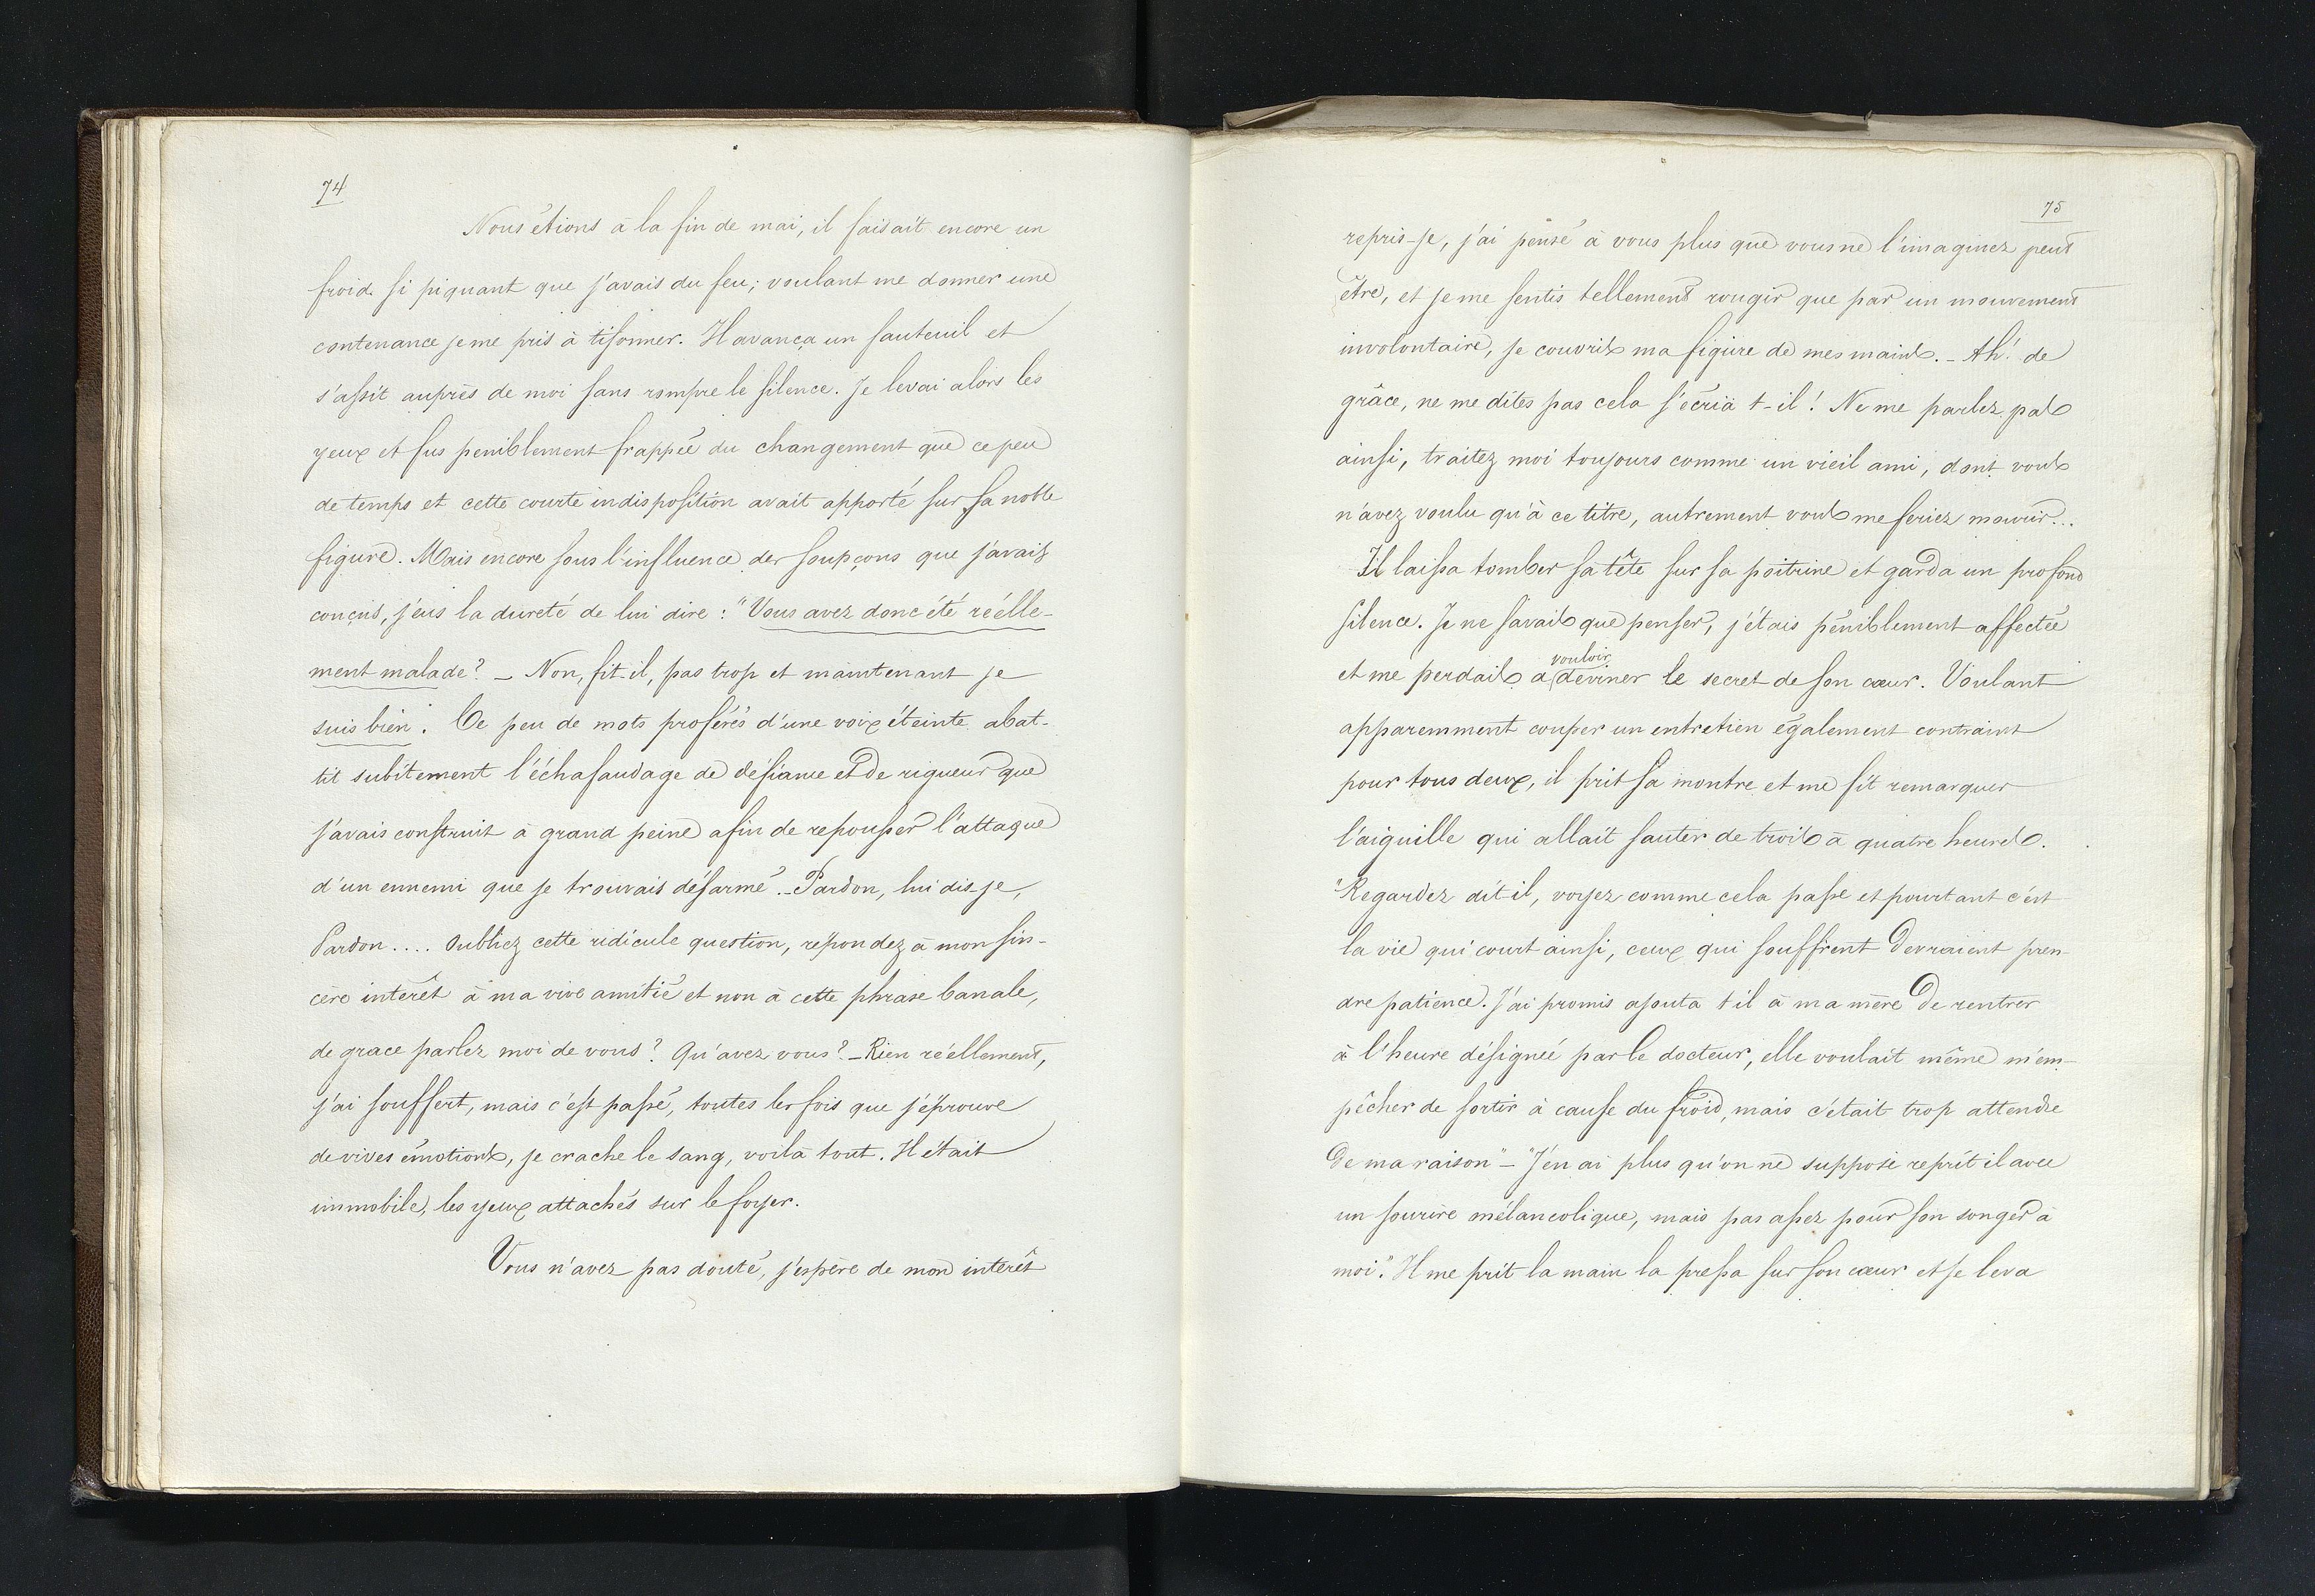 74
Nous étions à la fin de mai, il faisait encore un
froid si piquant que j'avais du feu; voulant me donner une
contenance je me pris à tisonner. Il avança un fauteuil et
s'assit auprès de moi sans rompre le silence. Je levai alors les
yeux et fus peniblement frappée du changement que ce peu
de temps et cette courte indisposition avait apporté sur sa noble
figure. Mais encore sous l'influence des soupçons que j'avais
conçus, j'eus la dureté de lui dire : "Vous avez donc été réelle-
ment malade? - Non, fit-il, pas trop et maintenant je
suis bien". Ce peu de mots proférés d'une voix éteinte abat-
tit subitement l'échafaudage de défiance et de rigueur que
j'avais construit à grand peine afin de repousser l'attaque
d'un ennemi que je trouvais désarmé. - Pardon, lui dis-je,
Pardon.... oubliez cette ridicule question, répondez à mon sin-
cère intérêt à ma vive amitié et non à cette phrase banale,
de grace parlez moi de vous? Qu'avez vous? - Rien réellement,
j'ai souffert, mais c'est passé, toutes les fois que j'éprouve
de vives émotions, je crache le sang, voilà tout. Il était
immobile, les yeux attachés sur le foyer.
Vous n'avez pas douté, j'espère de mon intérêt
75
repris-je, j'ai pensé à vous plus que vous ne l'imaginez peut
être, et je me sentis tellement rougir que par un mouvement
involontaire, je couvris ma figure de mes mains. - Ah! de
grâce, ne me dites pas cela s'écria t-il! Ne me parlez pas
ainsi, traitez moi toujours comme un vieil ami, dont vous
n'avez voulu qu'à ce titre, autrement vous me feriez mourir...
Il laissa tomber sa tête sur sa poitrine et garda un profond
silence. Je ne savais que penser, j'étais péniblement affectée
et me perdais à vouloir deviner le secret de son cœur. Voulant
apparemment couper un entretien également contraint
pour tous deux, il prit sa montre et me fit remarquer
l'aiguille qui allait sauter de trois à quatre heures.
"Regardez dit il, voyez comme cela passe et pourtant c'est
la vie qui court ainsi, ceux qui souffrent devraient pren-
dre patience. J'ai promis ajouta t il à ma mère de rentrer
à l'heure désignée par le docteur, elle voulait même m'em-
pêcher de sortir à cause du froid, mais c'était trop attendre
de ma raison" - "J'en ai plus qu'on ne suppose reprit il avec
un sourire mélancolique, mais pas assez pour son songer à
moi". Il me prit la main la pressa sur son cœur et se leva